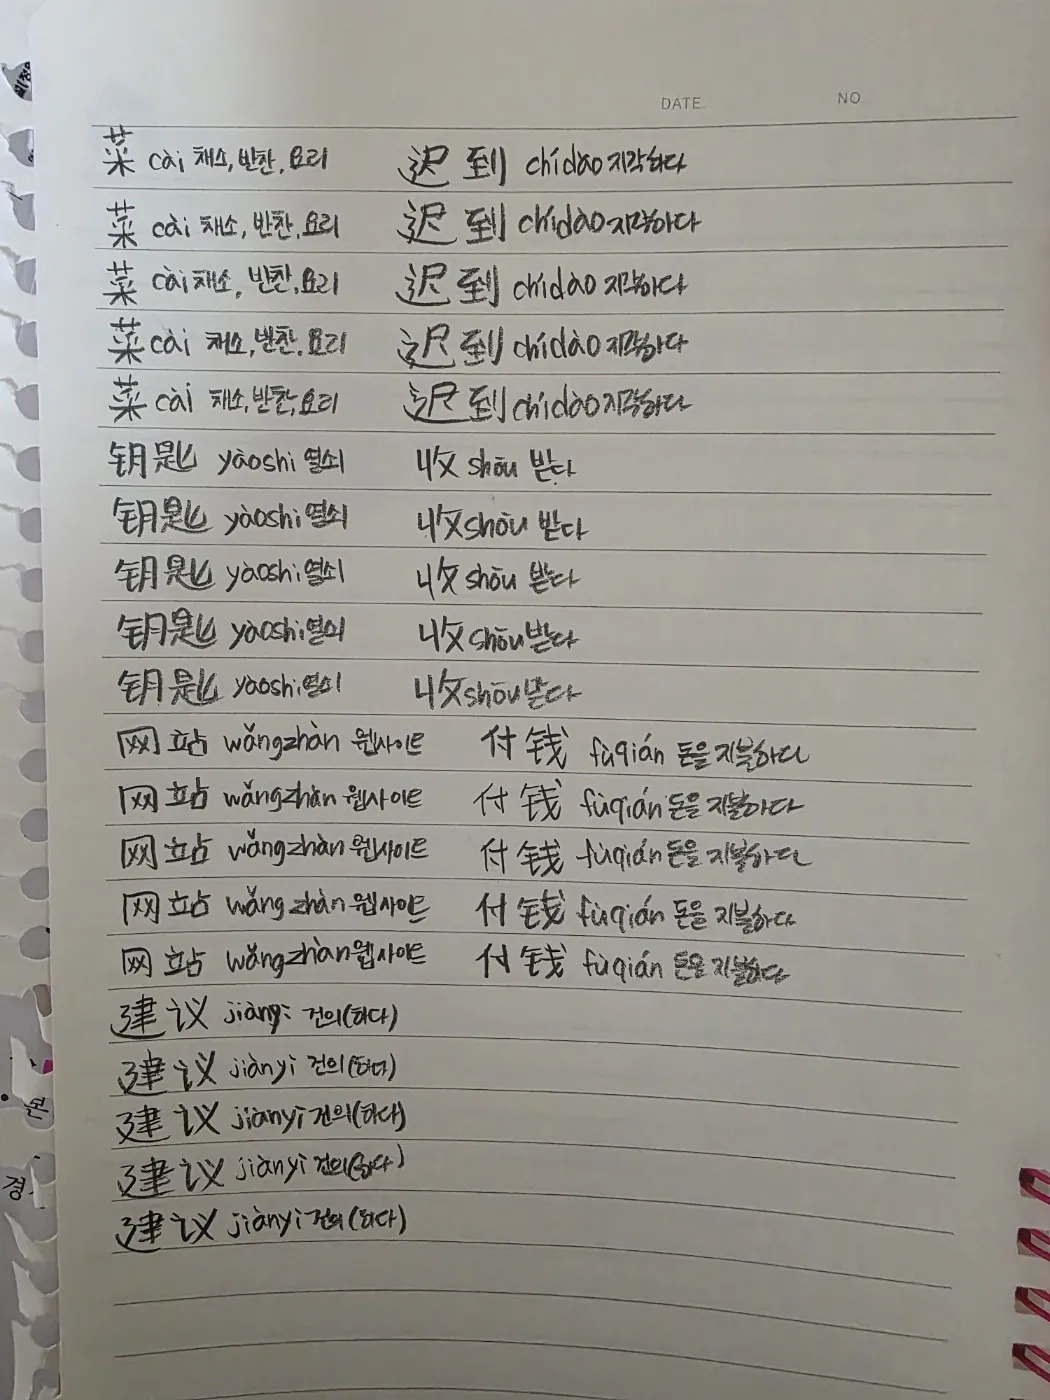 DATE NO
菜 cài 채소, 반찬, 요리 迟到 chídào 지각하다
菜 cài 채소, 반찬, 요리 迟到 chídào 지각하다
菜 cài 채소, 반찬, 요리 迟到 chídào 지각하다
菜 cài 채소, 반찬, 요리 迟到 chídào 지각하다
菜 cài 채소, 반찬, 요리 迟到 chídào 지각하다
钥匙 yàoshi 열쇠 收 shōu 받다
钥匙 yàoshi 열쇠 收 shōu 받다
钥匙 yàoshi 열쇠 收 shōu 받다
钥匙 yàoshi 열쇠 收 shōu 받다
钥匙 yàoshi 열쇠 收 shōu 받다
网站 wǎngzhàn 웹사이트 付钱 fùqián 돈을 지불하다
网站 wǎngzhàn 웹사이트 付钱 fùqián 돈을 지불하다
网站 wǎngzhàn 웹사이트 付钱 fùqián 돈을 지불하다
网站 wǎngzhàn 웹사이트 付钱 fùqián 돈을 지불하다
网站 wǎngzhàn 웹사이트 付钱 fùqián 돈을 지불하다
建议 jiànyì 건의(하다)
建议 jiànyì 건의(하다)
建议 jiànyì 건의(하다)
建议 jiànyì 건의(하다)
建议 jiànyì 건의(하다)